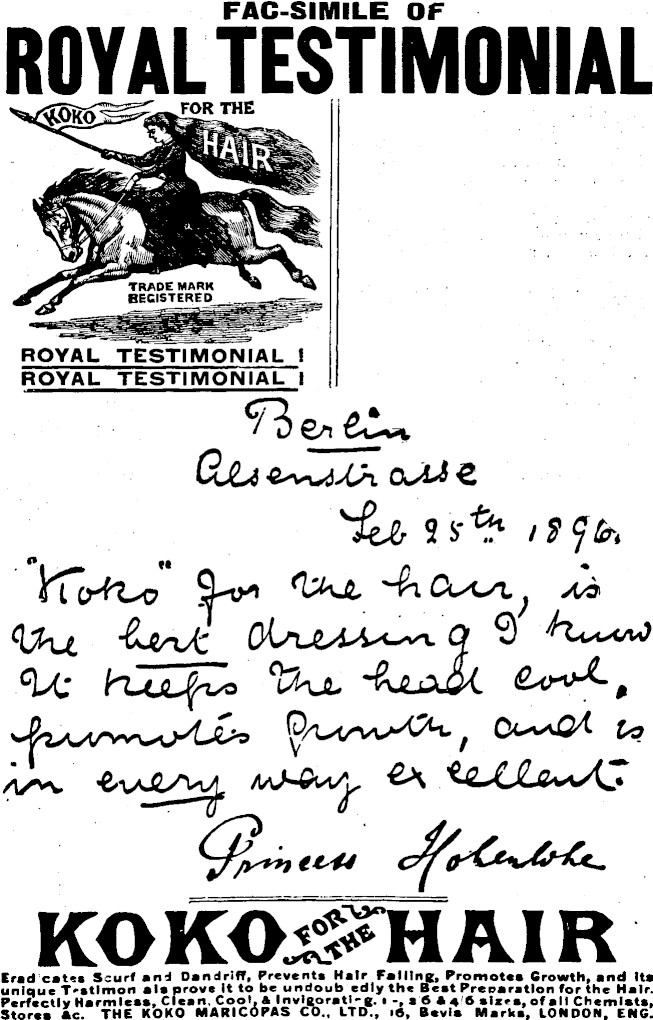 FAC-SIMILE OF
ROYAL TESTIMONIAL
KOKO FOR THE
HAIR
TRADE MARK
REGISTERED
ROYAL TESTIMONIAL !
ROYAL TESTIMONIAL !
Berlin
Alsenstrasse
Feb 25th 1896.
"Koko" for the hair, is
the best dressing I know
It keeps the head cool,
promotes growth, and is
in every way excellent.
Princess Hohenlohe
KOKO FOR THE HAIR
Eradicates Scurf and Dandriff, Prevents Hair Falling, Promotes Growth, and its
unique Testimonials prove it to be undoubtedly the Best Preparation for the Hair.
Perfectly Harmless, Clean, Cool, & Invigorating. 1 -, 2 6 & 4/6 sizes, of all Chemists,
Stores &c. THE KOKO MARICOPAS CO., LTD., 16, Bevis Marks, LONDON, ENG.